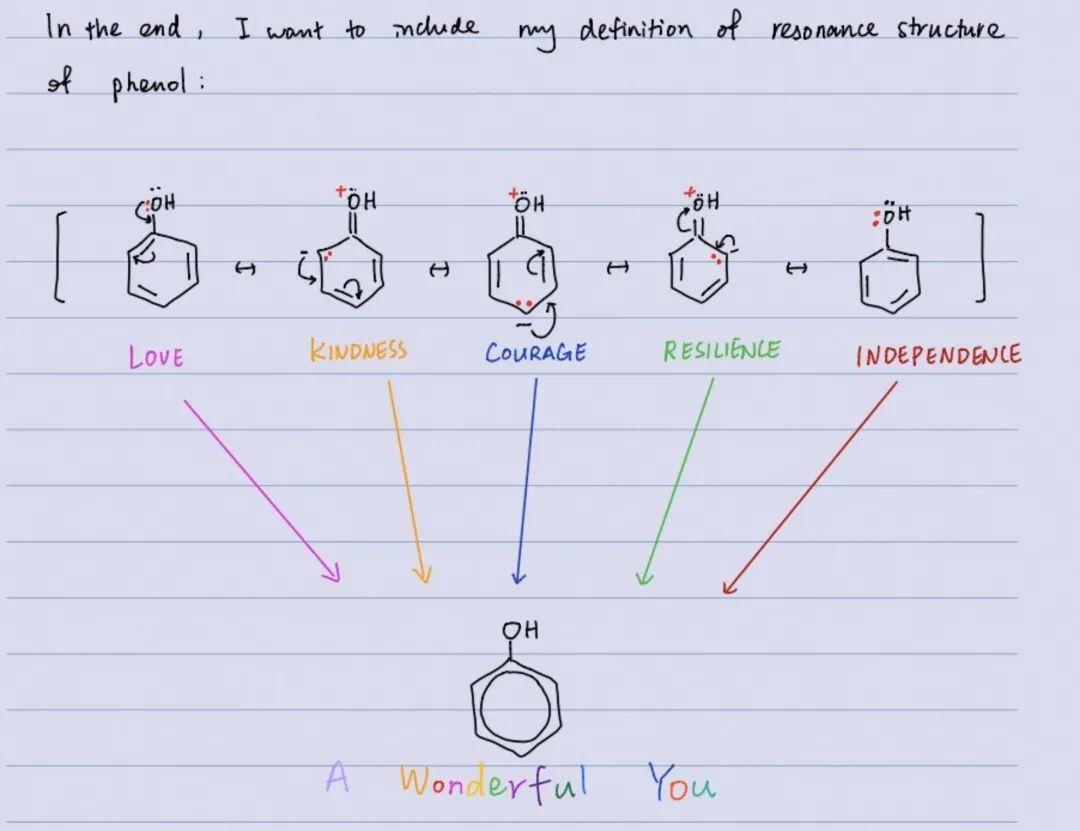 In the end, I want to include my definition of resonance structure
of phenol:
ÖH +ÖH +ÖH +ÖH :ÖH
LOVE KINDNESS COURAGE RESILIENCE INDEPENDENCE
OH
A Wonderful You